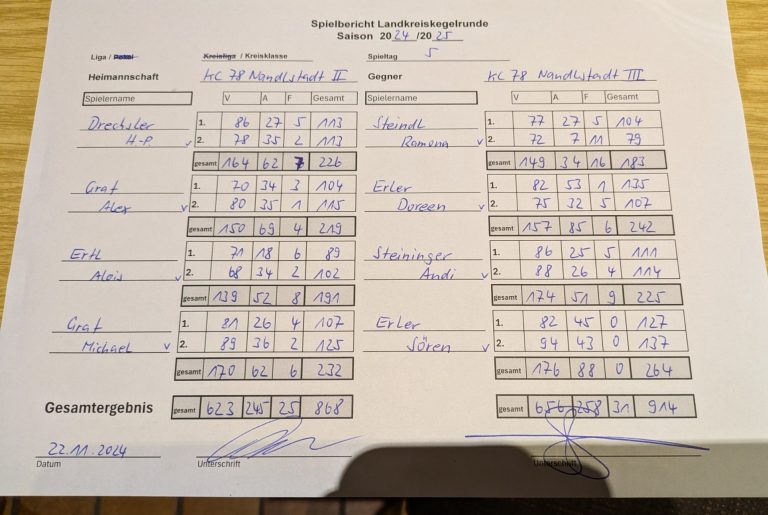 Spielbericht Landkreiskegelrunde
Saison 2024/2025
Liga / Pokal Kreisliga / Kreisklasse Spieltag 5
Heimannschaft KC 78 Nandlstadt II Gegner KC 78 Nandlstadt III
Spielername V A F Gesamt Spielername V A F Gesamt
Drechsler 1. 86 27 5 113 Steindl 1. 77 27 5 104
H.-P. v 2. 78 35 2 113 Ramona v 2. 72 7 11 79
gesamt 164 62 7 226 gesamt 149 34 16 183
Graf 1. 70 34 3 104 Erler 1. 82 53 1 135
Alex v 2. 80 35 1 115 Doreen v 2. 75 32 5 107
gesamt 150 69 4 219 gesamt 157 85 6 242
Ertl 1. 71 18 6 89 Steininger 1. 86 25 5 111
Alois v 2. 68 34 2 102 Andi v 2. 88 26 4 114
gesamt 139 52 8 191 gesamt 174 51 9 225
Graf 1. 81 26 4 107 Erler 1. 82 45 0 127
Michael v 2. 89 36 2 125 Sören v 2. 94 43 0 137
gesamt 170 62 6 232 gesamt 176 88 0 264
Gesamtergebnis gesamt 623 245 25 868 gesamt 656 258 31 914
22.11.2024
Datum Unterschrift Unterschrift